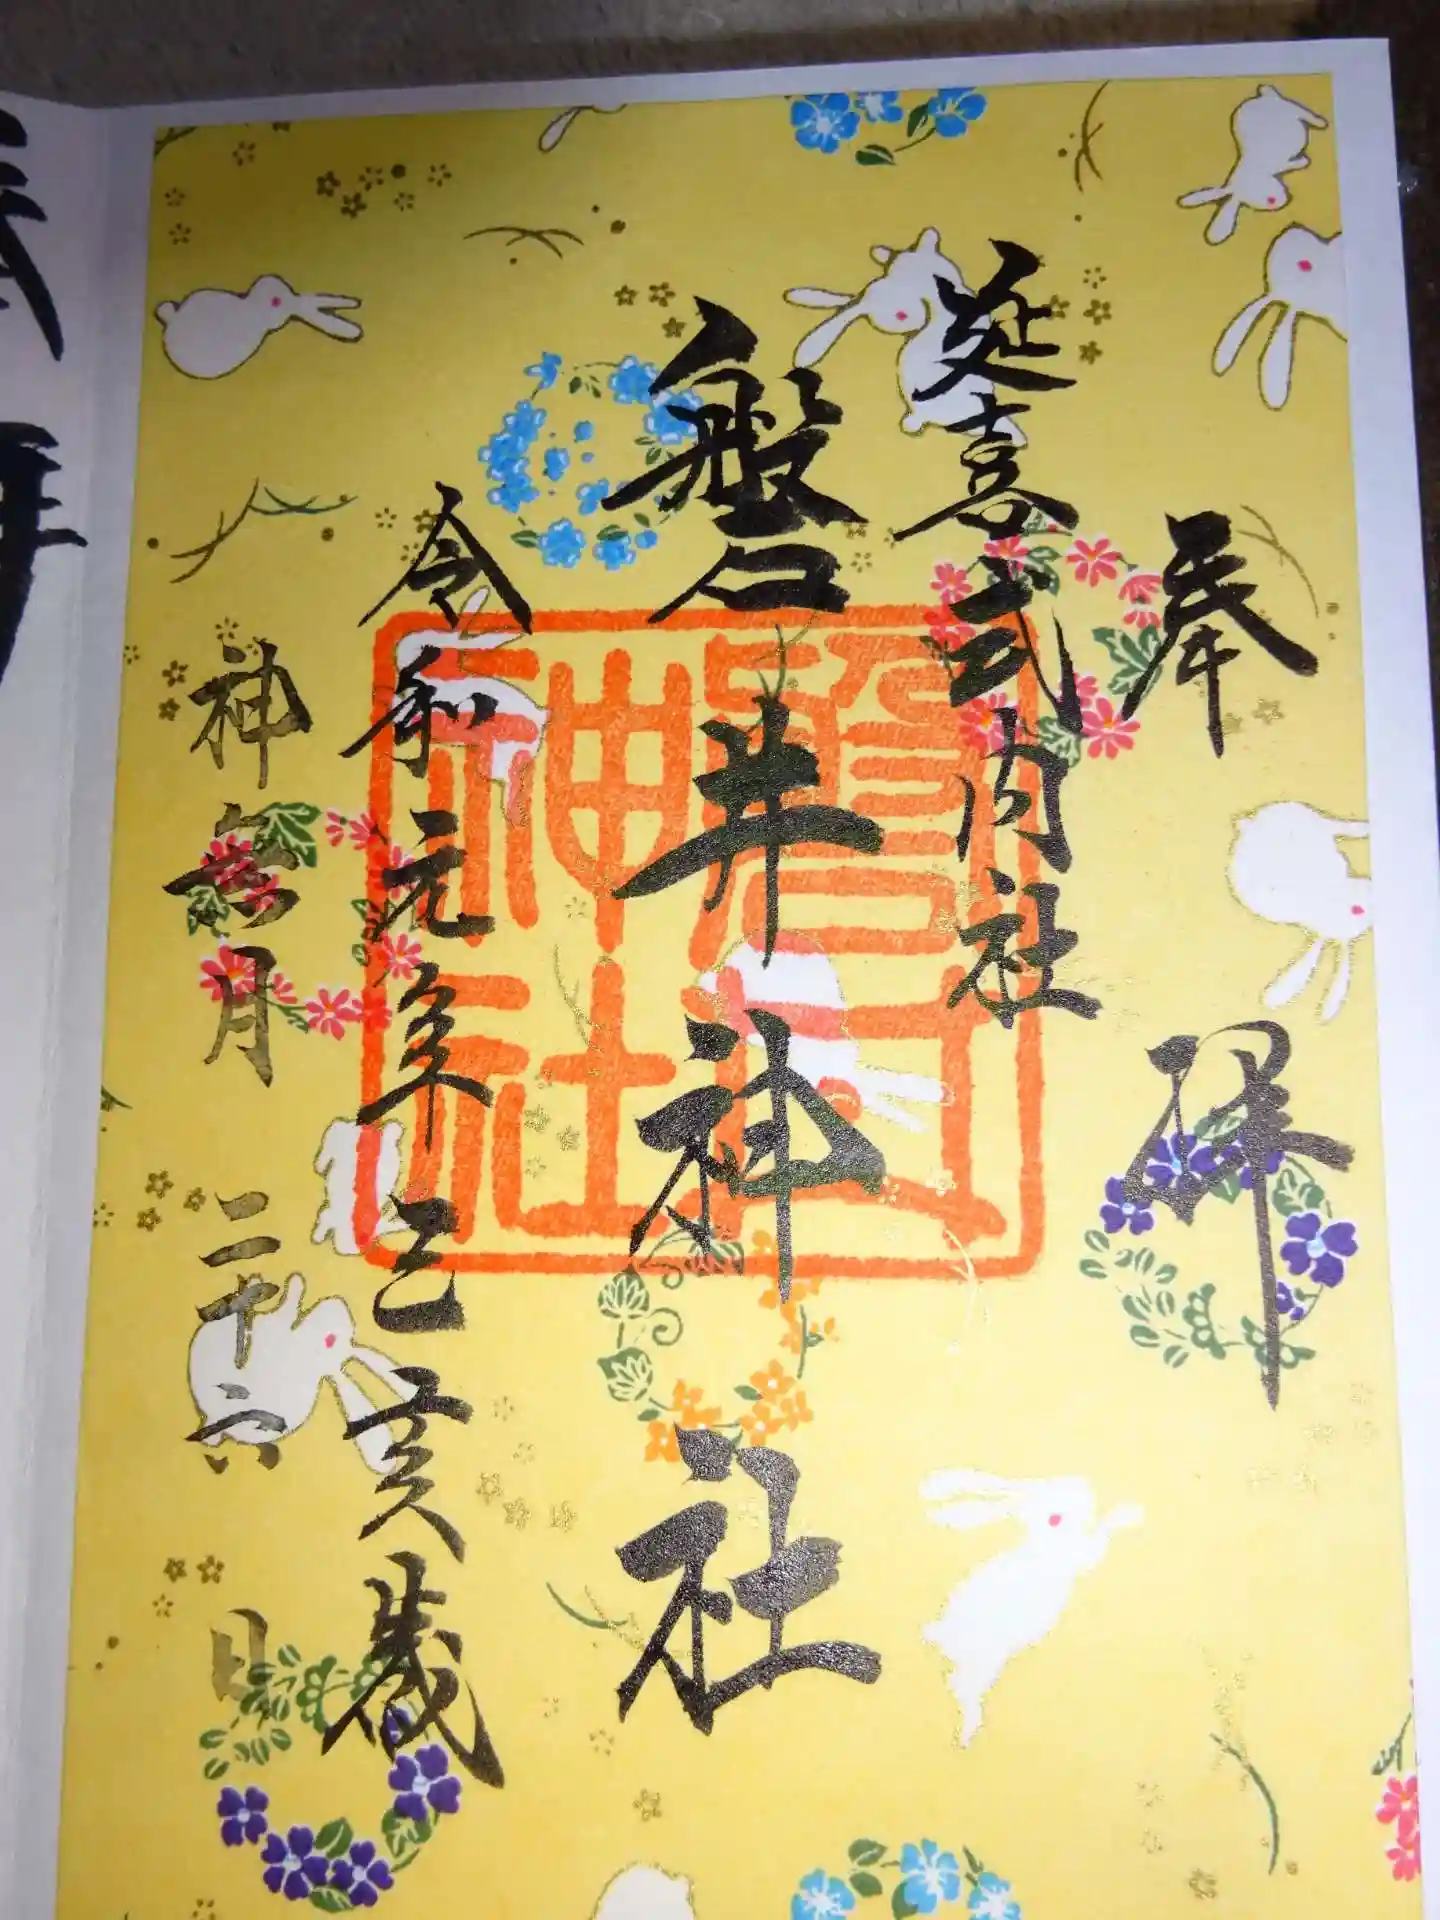 奉拝
延喜式内社
磐井神社
令和元年己亥歳
神無月二十六日
磐井神社
奉拝